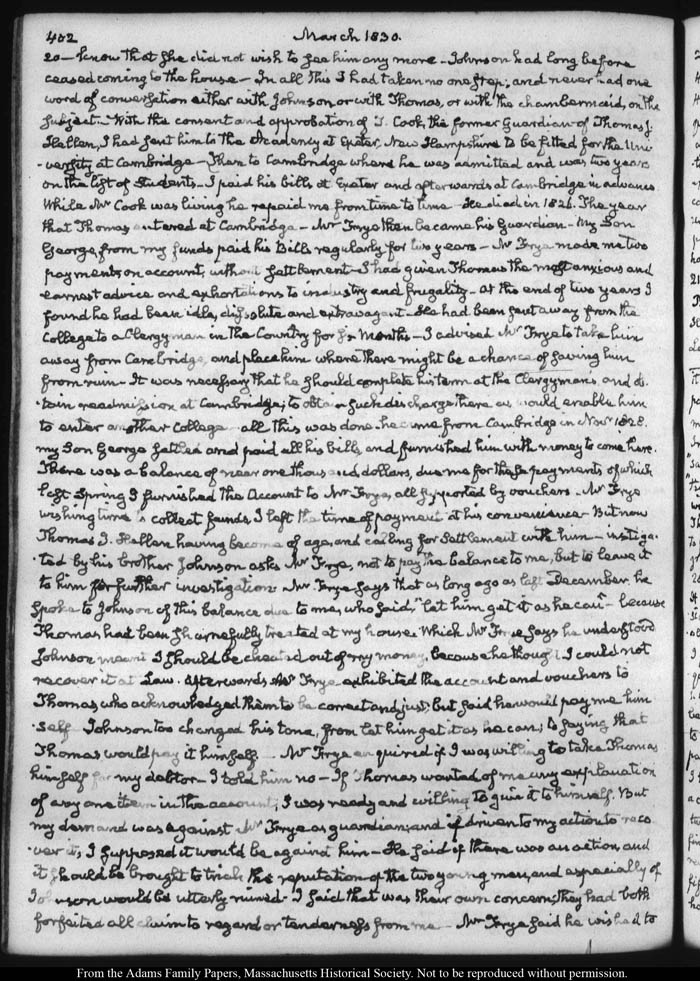 402 March 1830.
20 — know that she did not wish to see him any more — Johnson had long before
ceased coming to the house — In all this I had taken no one step; and never had one
word of conversation either with Johnson or with Thomas, or with the chambermaid, on the
subject. With the consent and approbation of T. Cook, the former Guardian of Thomas J.
Hellen, I had sent him to the Academy at Exeter, New Hampshire to be fitted for the Uni-
-versity at Cambridge — Then to Cambridge where he was admitted and was two years
on the list of Students — I paid his bills at Exeter and afterwards at Cambridge in advance
While Mr Cook was living he repaid me from time to time — He died in 1826. The year
that Thomas entered at Cambridge — Mr Frye then became his Guardian — My Son
George, from my funds paid his Bills regularly for two years — Mr Frye made me two
payments on account, without settlement — I had given Thomas the most anxious and
earnest advice and exhortations to industry and frugality — At the end of two years I
found he had been idle, dissolute and extravagant — He had been sent away from the
College to a Clergyman in the Country for six Months — I advised Mr Frye to take him
away from Cambridge, and place him where there might be a chance of saving him
from ruin — It was necessary that he should complete his term at the Clergyman's and ob-
-tain readmission at Cambridge; to obtain such discharge there as would enable him
to enter another College — all this was done. he came from Cambridge in Novr 1828.
my Son George settled and paid all his bills, and furnished him with money to come here.
There was a balance of near one thousand dollars, due me for these payments of which
last Spring I furnished the Account to Mr Frye, all supported by vouchers — Mr Frye
wishing time to collect funds, I left the time of payment at his convenience — But now
Thomas J. Hellen having become of age, and calling for Settlement with him — instiga-
-ted by his brother Johnson asks Mr Frye, not to pay the balance to me, but to leave it
to him for further investigation — Mr Frye says that as long ago as last December, he
spoke to Johnson of this balance due to me, who said, "let him get it as he can" — because
Thomas had been shamefully treated at my house. Which Mr Frye says he understood
Johnson meant I should be cheated out of my money, because he thought I could not
recover it at Law. Afterwards Mr Frye exhibited the account and vouchers to
Thomas, who acknowledged them to be correct and just; but said he would pay me him
-self Johnson too changed his tone, from let him get it as he can; to saying that
Thomas would pay it himself — Mr Frye enquired if I was willing to take Thomas
himself for my debtor — I told him no — If Thomas wanted of me any explanation
of any one item in the account; I was ready and willing to give it to himself. But
my demand was against Mr Frye as guardian; and if driven to my action to reco-
-ver it, I supposed it would be against him — He said if there was an action, and
it should be brought to trial, the reputation of the two young men, and especially of
Johnson would be utterly ruined — I said that was their own concern; they had both
forfeited all claim to regard or tenderness from me — Mr Frye said he wished to
From the Adams Family Papers, Massachusetts Historical Society. Not to be reproduced without permission.